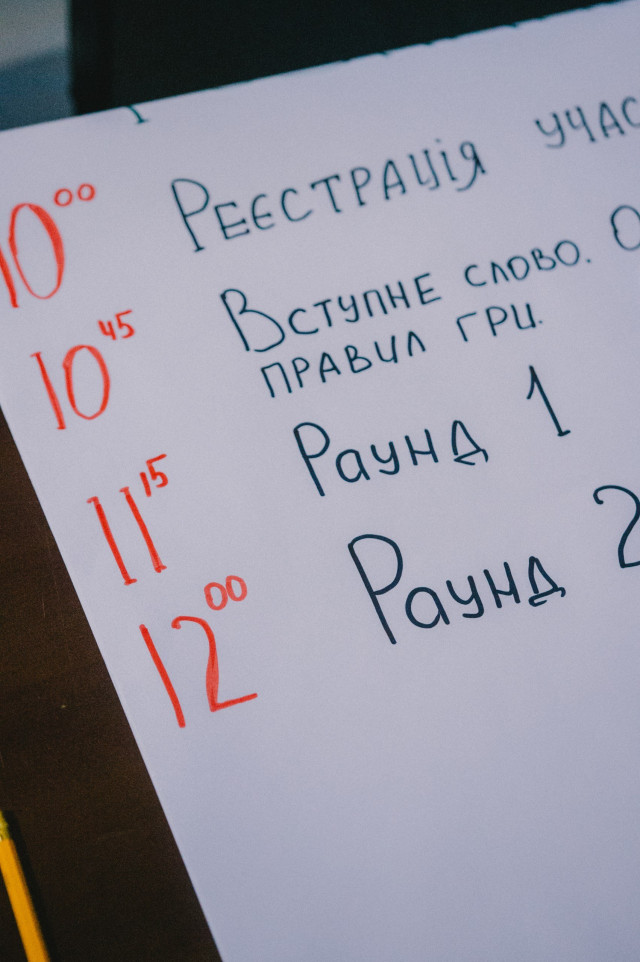 10⁰⁰ Реєстрація учас
10⁴⁵ Вступне слово. О
правил гри.
11¹⁵ Раунд 1
12⁰⁰ Раунд 2